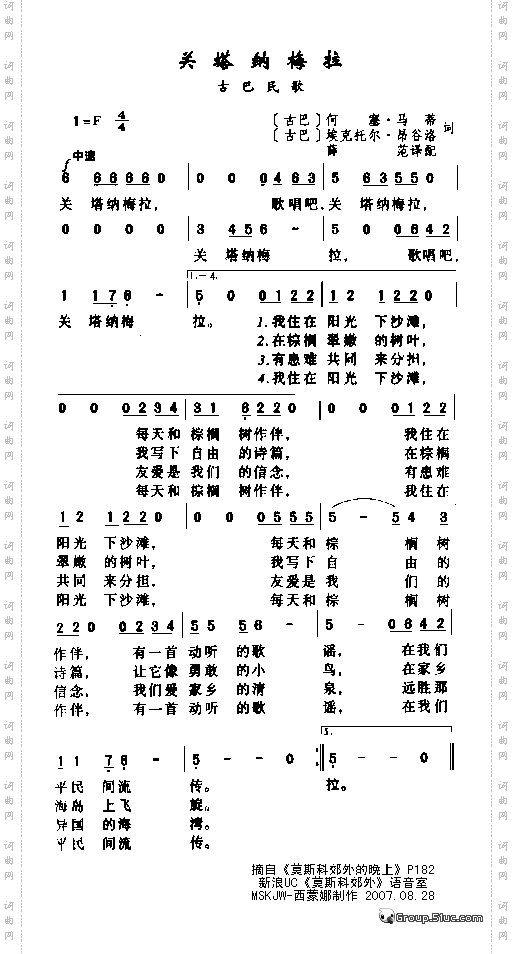 关塔纳梅拉
古巴民歌
1=F 4/4
〔古巴〕何塞·马蒂
〔古巴〕埃克托尔·昂谷洛 词
薛范译配
中速
6 66660 0 0 0463 5 63550
关 塔纳梅拉, 歌唱吧,关 塔纳梅拉,
0 0 0 0 3 456 - 5 0 0642
关 塔纳梅 拉, 歌唱吧,
1.-4.
1 176 - 5 0 0122 12 1220
关 塔纳梅 拉。 1.我住在 阳光 下沙滩,
2.在棕榈 翠嫩 的树叶,
3.有患难 共同 来分担,
4.我住在 阳光 下沙滩,
0 0 0234 31 6220 0 0 0122
每天和 棕榈 树作伴, 我住在
我写下 自由 的诗篇, 在棕榈
友爱是 我们 的信念, 有患难
每天和 棕榈 树作伴, 我住在
12 1220 0 0 0555 5 - 54 3
阳光 下沙滩, 每天和 棕 榈 树
翠嫩 的树叶, 我写下 自 由 的
共同 来分担, 友爱是 我 们 的
阳光 下沙滩, 每天和 棕 榈 树
220 0234 55 56 - 5 - 0642
作伴, 有一首 动听 的歌 谣, 在我们
诗篇, 让它像 勇敢 的小 鸟, 在家乡
信念, 我们爱 家乡 的清 泉, 远胜那
作伴, 有一首 动听 的歌 谣, 在我们
5.
11 76 - 5 - - :‖ 5 - 0
平民 间流 传。 拉。
海岛 上飞 旋。
异国 的海 湾。
平民 间流 传。
摘自《莫斯科郊外的晚上》P182
新浪UC《莫斯科郊外》语音室
MSKJW-西蒙娜制作 2007.08.28
Group.51uc.com
词曲网